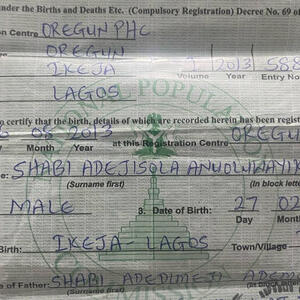 under the Births and Deaths Etc. (Compulsory Registration) Decree No. 69 of
on Centre OREGUN PHC
OREGUN
IKEJA 1 2013 588
Volume Year Entry No
LAGOS
NATIONAL POPULATIO
o certify that the birth, details of which are recorded herein has been regist
08 2013 OREGU
Month Year at this Registration Centre
SHABI ADEJISOLA ANUOLUWAYIK
(Surname first) (In block lette
MALE 3. Date of Birth: 27 02
Day Month
Birth: IKEJA - LAGOS Town/Village
of Father: SHABI ADEDIMEJI ADEM
(Surname first)